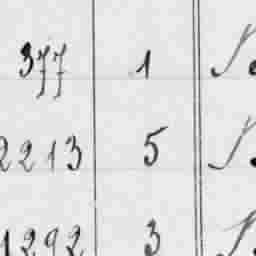 377 1
2213 5
1292 3